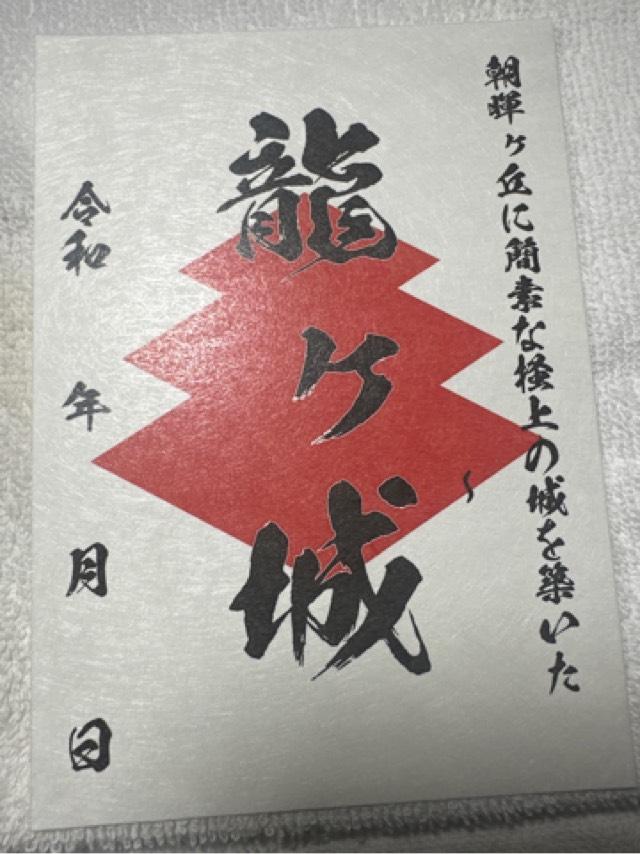 朝暉ヶ丘に簡素な極上の城を築いた
〜
龍ヶ城
令和 年 月 日